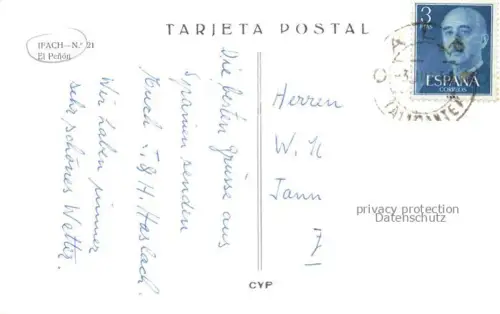 TARJETA POSTAL
IFACH—N.º 21
El Peñón
3
PTAS
ESPAÑA
CORREOS
(ALICANTE)
Die besten Grüsse aus
Spanien senden
Euch
H. Haslach.
Wir haben immer
sehr schönes Wetter.
Herren
W. K
Tann
7
privacy protection
Datenschutz
CYP